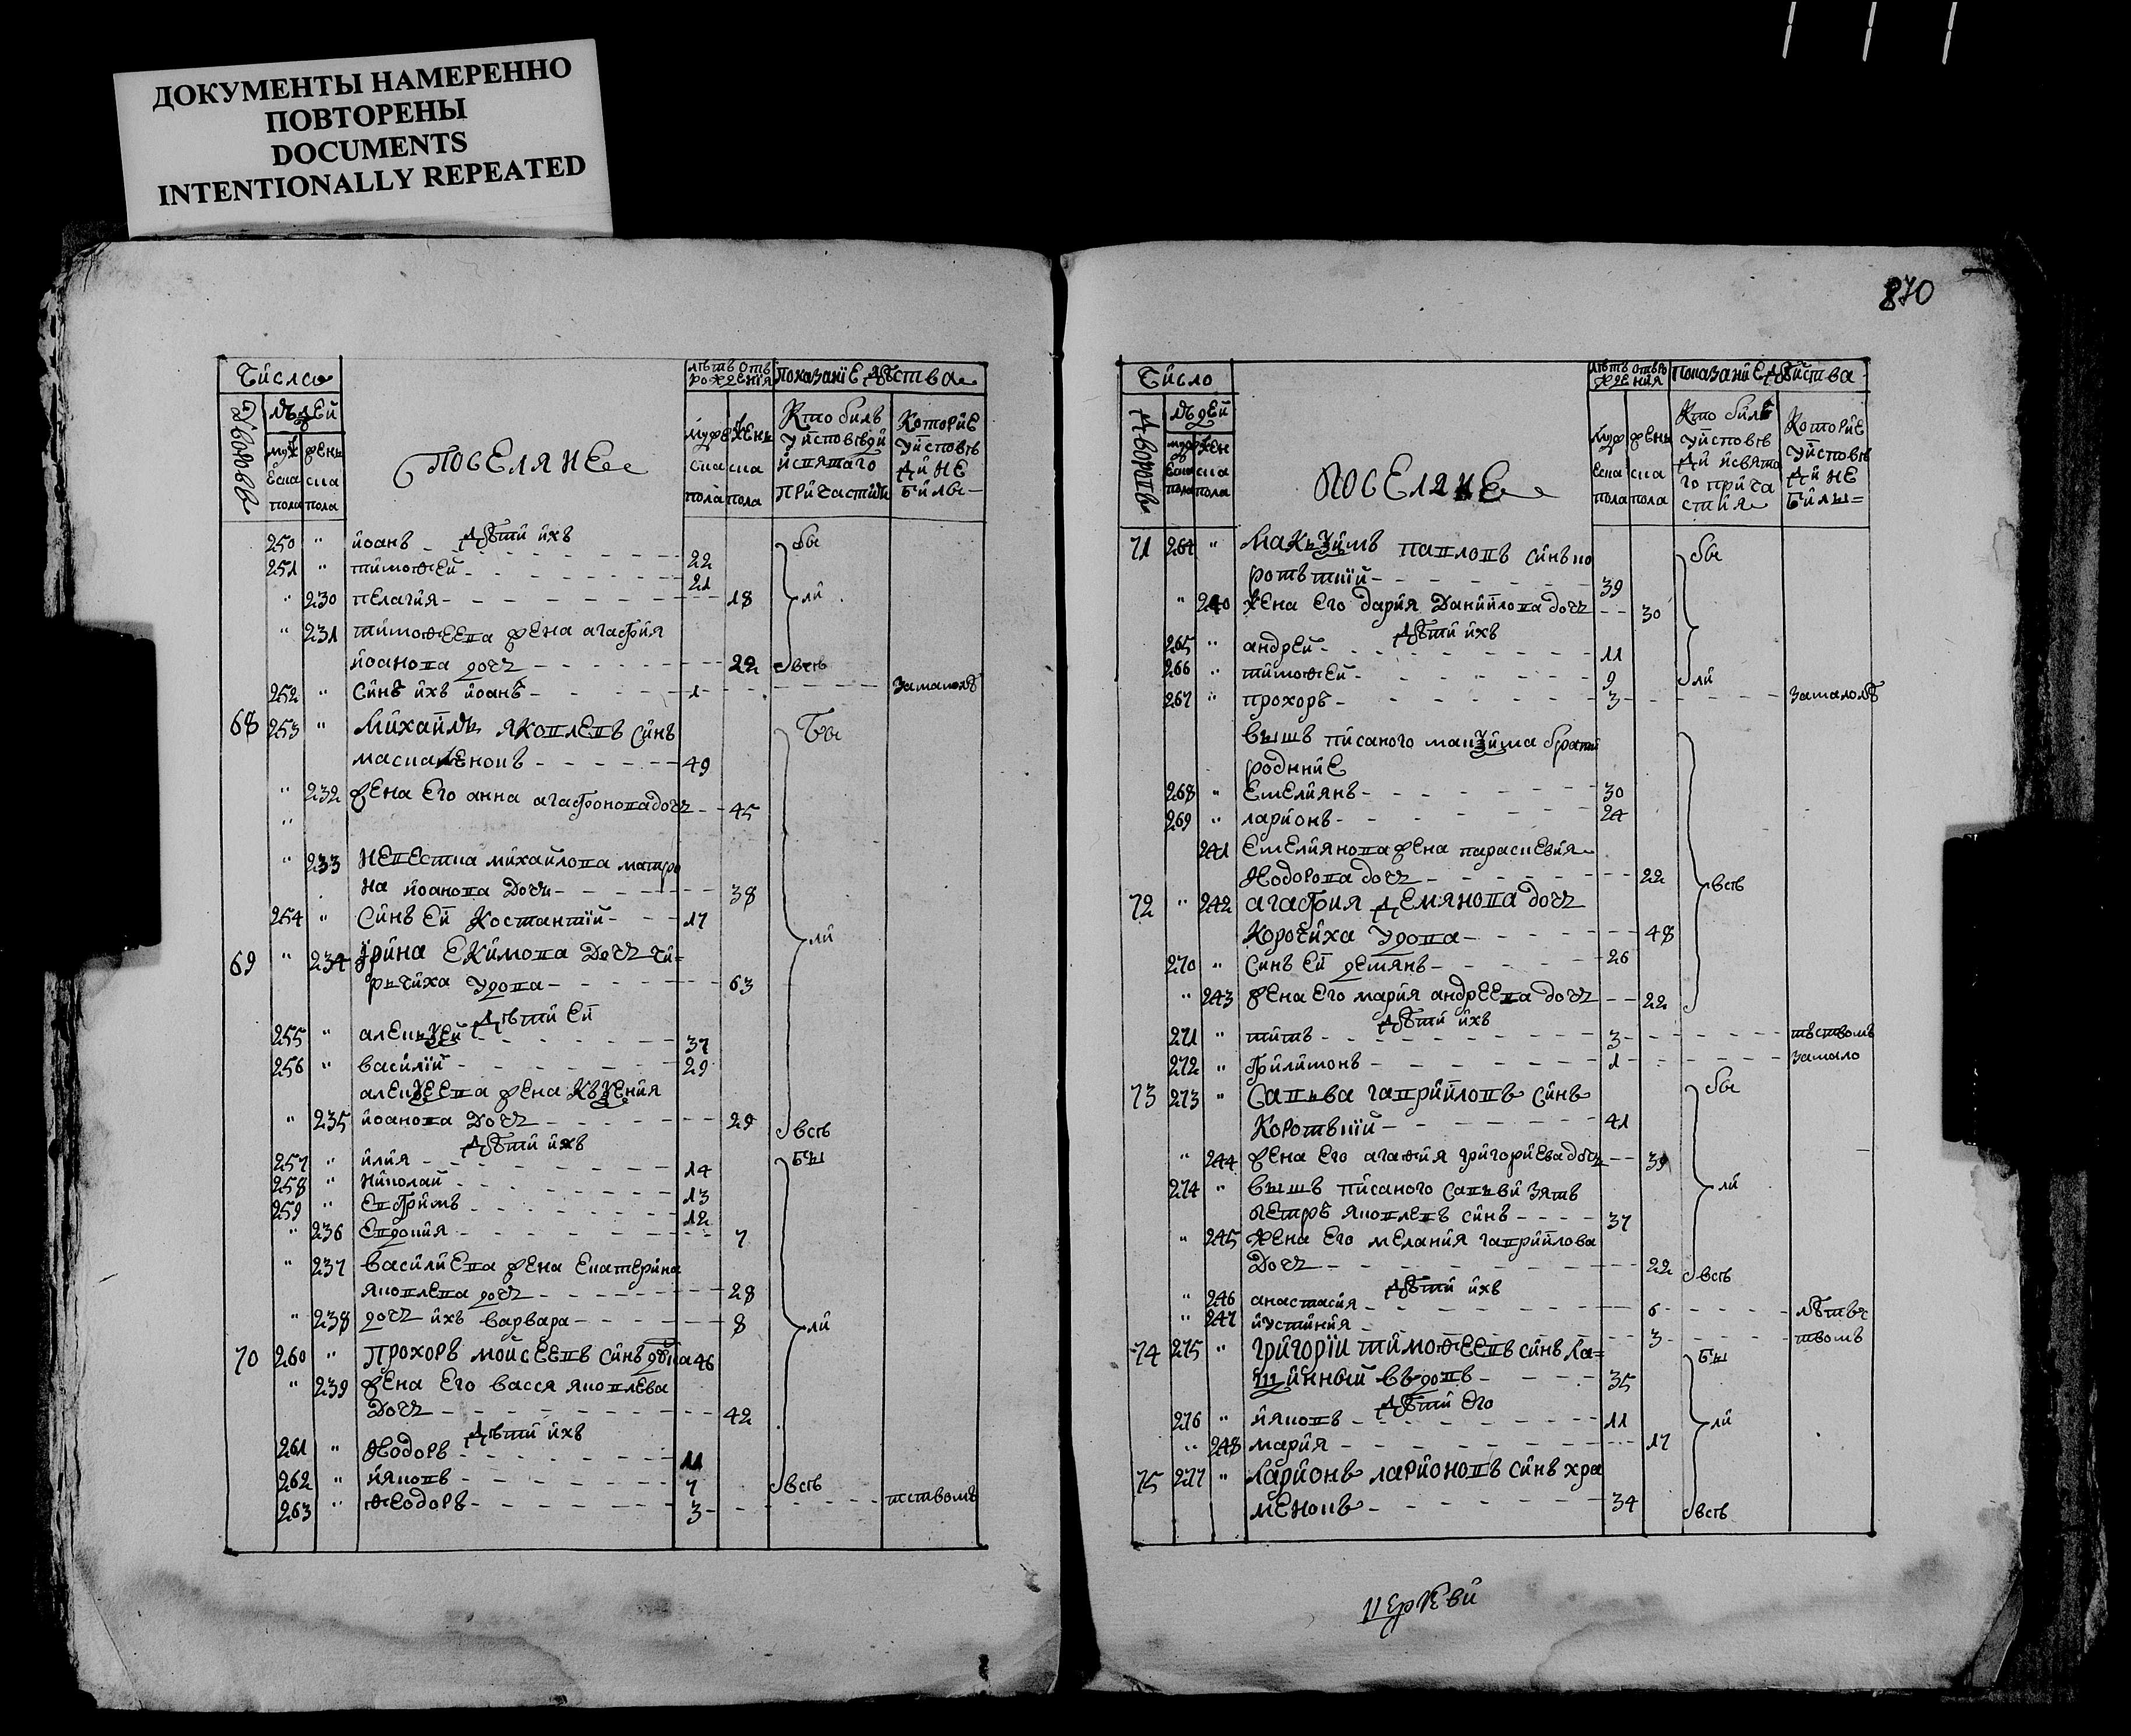 ДОКУМЕНТЫ НАМЕРЕННО
ПОВТОРЕНЫ
DOCUMENTS
INTENTIONALLY REPEATED
870
Число
лѣтъ отъ рожденїя
показанїе дѣйства
Дворовъ
людей
мужеска пола
женска пола
ПОСЕЛЯНЕ
мужеска пола
женска пола
Кто билъ у исповѣди и святаго причастия
Которїе у исповѣди не били
250 " иоанъ 22 бы
дѣти ихъ
251 " тимоѳей 21
" 230 пелагия 18 ли
" 231 тимоѳеева жена агафия
иоанова дочь 22 всѣ
252 " синъ ихъ иоанъ 1 за малолѣ
68 253 " Михаилъ яковлевъ синъ Бы
49
" 232 жена его анна агафонова дочь 45
"
" 233 невестка михайлова матро
на иоанова дочь 38
254 " Синъ ей Костантїй 17 ли
69 " 234 Їрина Екимова дочь чи=
рьчиха удова 63
дѣти ей
255 " алеѣзей 37
256 " василїй 29
жена Квзения
" 235 иоанова дочь 29 всѣ
дѣти ихъ
257 " илия 14 Бы
258 " николай 13
259 " Ефримъ 12
" 236 Евдокия 7
" 237 василиева жена екатерина
яковлева дочь 28
" 238 дочь ихъ варвара 8 ли
70 260 " Прохоръ моисеевъ синъ 46
" 239 жена его васся яковлева
дочь 42
дѣти ихъ
261 " Ѳодоръ 11
262 "ияковъ 7 всѣ
263 " Ѳеодоръ 3 тствомъ
Число
лѣтъ отъ рождения
показание дѣйства
Дворовъ
людей
мужеска пола
женска пола
ПОСЕЛЯНЕ
мужеска пола
женска пола
Кто билъ у исповѣди и святаго причастия
Которїе у исповѣди не били
71 264 " Макъзимъ павловъ синъ ко
ротькїй 39 бы
" 240 жена его дария данийлова дочь 30
дѣти ихъ
265 " андрей 11
266 " тимоѳей 9 ли
267 " прохоръ 3 за малолѣ
вышъ писаного макзима брати
родние
268 " Емелиянъ 30
269 " ларионъ 24
241 Емелиянова жена параскевия
Ѳодорова дочь 22 всѣ
72 " 242 агафия демянова дочь
Корочиха удова 48
270 " синъ ей демянъ 26
" 243 жена его мария андреева дочь 22
дѣти ихъ
271 " титъ 3 тством
272 " Филимонъ 1 за мало
73 273 " Савъва гаврийловъ синъ бы
Коротькїй 41
" 244 жена его агафия григориева дочь 39
274 " вышъ писаного савьви зять ли
петръ яковлевъ синъ 37
" 245 жена его мелания гаврийлова
дочь 22 всѣ
дѣти ихъ
" 246 анастасия 6 лѣтьс
" 247 иустиния 3 твомъ
74 275 " григорїй тимоѳеевъ синъ ка= Бы
шинный въдовъ 35
дѣти его
276 " ияковъ 11 ли
" 248 мария 17
75 277 " ларионъ ларионовъ синъ хра
меновъ 34 всѣ
церкви